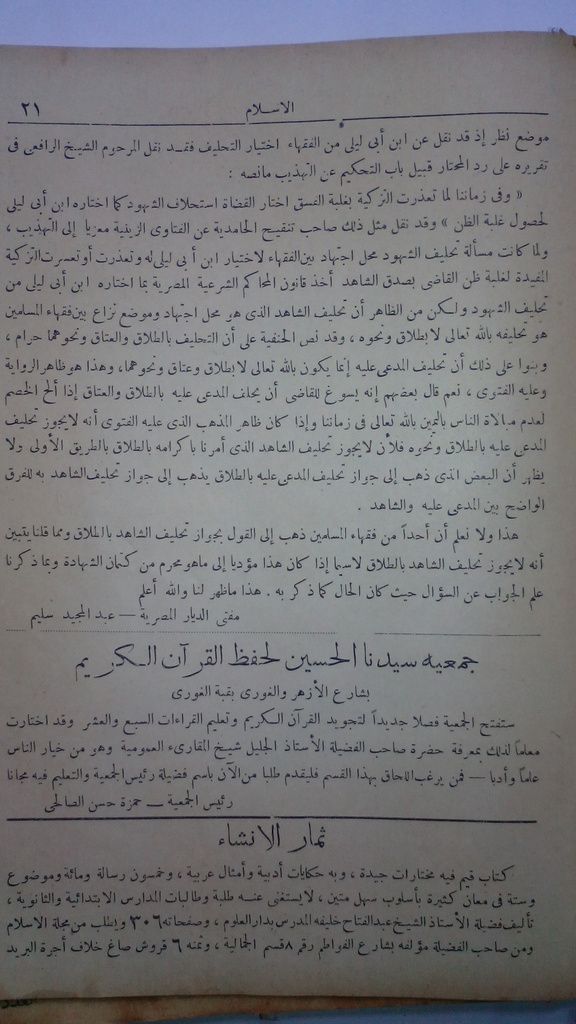 ٢١
الاسلام
موضع نظر إذ قد نقل عن ابن أبى ليلى من الفقهاء اختيار التحليف فقد نقل المرحوم الشيخ الرافعى فى
تقريره على رد المحتار قبيل باب التحكيم عن التهذيب مانصه :
« وفى زماننا لما تعذرت التزكية بغلبة الفسق اختار القضاة استحلاف الشهود كما اختاره ابن أبى ليلى
لحصول غلبة الظن » وقد نقل مثل ذلك صاحب تنقيح الحامدية عن الفتاوى الزينية معزيا إلى التهذيب ،
ولما كانت مسألة تحليف الشهود محل اجتهاد بين الفقهاء لاختيار ابن أبى ليلى له وتعذرت أو تعسرت التزكية
المفيدة لغلبة ظن القاضى بصدق الشاهد أخذ قانون المحاكم الشرعية المصرية بما اختاره ابن أبى ليلى من
تحليف الشهود ولكن من الظاهر أن تحليف الشاهد الذى هو محل اجتهاد وموضع نزاع بين فقهاء المسلمين
هو تحليفه بالله تعالى لا بطلاق ونحوه ، وقد نص الحنفية على أن التحليف بالطلاق والعتاق ونحوهما حرام ،
وبنوا على ذلك أن تحليف المدعى عليه إنما يكون بالله تعالى لا بطلاق وعتاق ونحوهما، وهذا هو ظاهر الرواية
وعليه الفتوى ، نعم قال بعضهم إنه يسوغ للقاضى أن يحلف المدعى عليه بالطلاق والعتاق إذا ألح الخصم
لعدم مبالاة الناس باليمين بالله تعالى فى زماننا وإذا كان ظاهر المذهب الذى عليه الفتوى أنه لايجوز تحليف
المدعى عليه بالطلاق ونحوه فلأن لايجوز تحليف الشاهد الذى أمرنا باكرامه بالطلاق بالطريق الأولى ولا
يظهر أن البعض الذى ذهب إلى جواز تحليف المدعى عليه بالطلاق يذهب إلى جواز تحليف الشاهد به للفرق
الواضح بين المدعى عليه والشاهد .
هذا ولا نعلم أن أحداً من فقهاء المسلمين ذهب إلى القول بجواز تحليف الشاهد بالطلاق ومما قلنا يتبين
أنه لايجوز تحليف الشاهد بالطلاق لاسيما إذا كان هذا مؤديا إلى ماهو محرم من كتمان الشهادة وبما ذكرنا
علم الجواب عن السؤال حيث كان الحال كما ذكر به . هذا ماظهر لنا والله أعلم
مفتى الديار المصرية — عبد المجيد سليم
جمعيه سيدنا الحسين لحفظ القرآن الكريم
بشارع الأزهر والغورى بقبة الغورى
ستفتح الجمعية فصلا جديداً لتجويد القرآن الكريم وتعليم القراءات السبع والعشر وقد اختارت
معلماً لذلك بمعرفة حضرة صاحب الفضيلة الأستاذ الجليل شيخ المقارىء العمومية وهو من خيار الناس
علماً وأدبا — فمن يرغب اللحاق بهذا القسم فليقدم طلبا من الآن باسم فضيلة رئيس الجمعية والتعليم فيه مجانا
رئيس الجمعية — حمزة حسن الصالحى
ثمار الإنشاء
كتاب قيم فيه مختارات جيدة ، وبه حكايات أدبية وأمثال عربية ، وخمسون رسالة ومائة وموضوع
وستة فى معان كثيرة بأسلوب سهل متين ، لايستغنى عنه طلبة وطالبات المدارس الابتدائية والثانوية ،
تأليف فضيلة الأستاذ الشيخ عبدالفتاح خليفه المدرس بدار العلوم ، وصفحاته ٣٠٦ ويطلب من مجلة الاسلام
ومن صاحب الفضيلة مؤلفه بشارع الفواطم رقم ٨ قسم الجمالية ، وثمنه ٦ قروش صاغ خلاف أجرة البريد